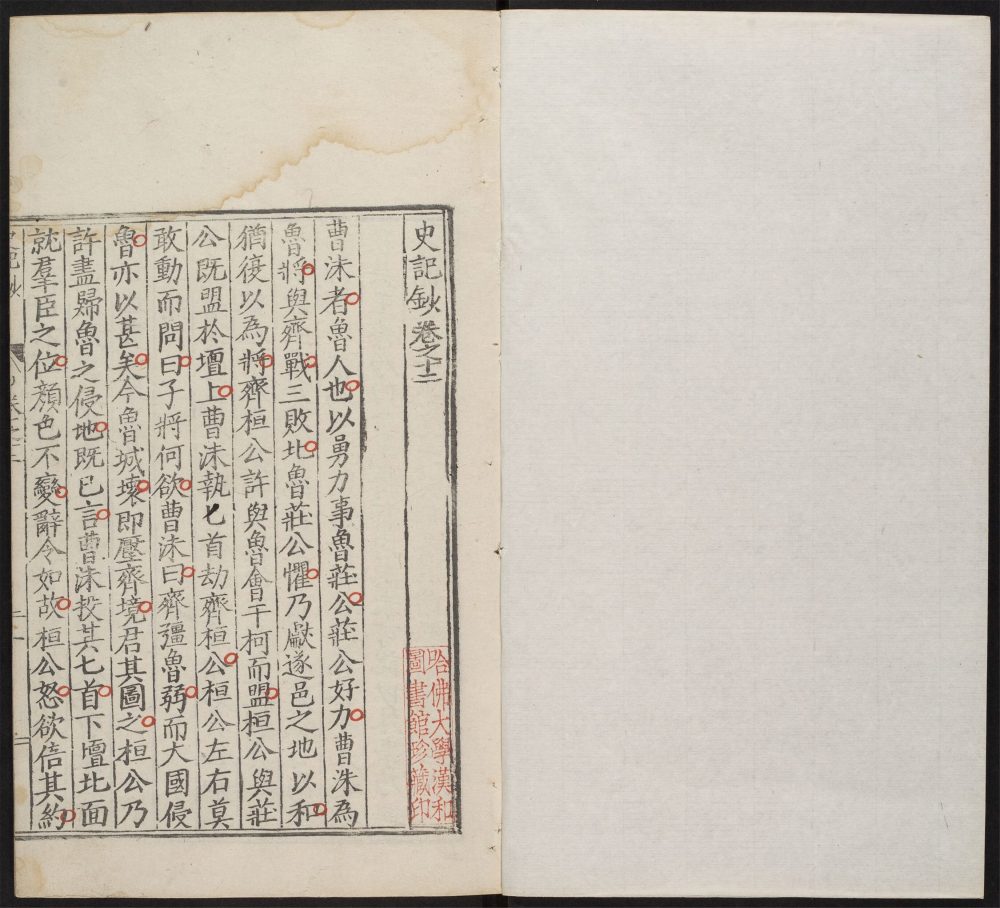 史記鈔卷之十二
哈佛大學漢和
圖書館珍藏印
曹沬者魯人也以勇力事魯莊公莊公好力曹沬為
魯將與齊戰三敗北魯莊公懼乃獻遂邑之地以和
猶復以為將齊桓公許與魯會于柯而盟桓公與莊
公既盟於壇上曹沬執匕首劫齊桓公桓公左右莫
敢動而問曰子將何欲曹沬曰齊彊魯弱而大國侵
魯亦以甚矣今魯城壞即壓齊境君其圖之桓公乃
許盡歸魯之侵地既已言曹沬投其匕首下壇北面
就羣臣之位顏色不變辭令如故桓公怒欲倍其約